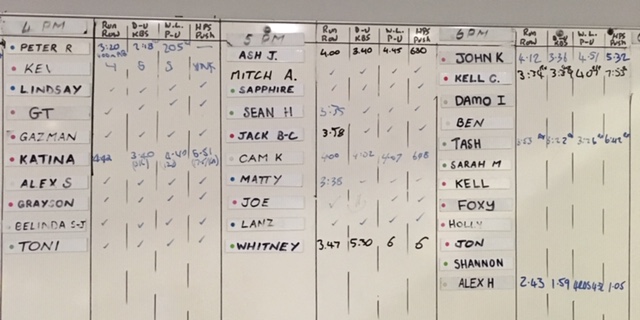 4 PM Run Row D-U KBS W.L. P-U HPS Push
PETER R 3:20 2 48 205
KEV 4 5 5
LINDSAY ✓ ✓ ✓ ✓
GT ✓ ✓ ✓
GAZMAN ✓ ✓ ✓ ✓
KATINA 3:40 5:51
ALEX S ✓ ✓ ✓ ✓
GRAYSON ✓ ✓ ✓ ✓
BELINDA S-J ✓ ✓ ✓ ✓
TONI ✓ ✓ ✓ ✓
5 PM Run Row D-U KBS W.L. P-U HPS Push
ASH J. 4.00 3.40 4.45 6
MITCH A. ✓ ✓ ✓ ✓
SAPPHIRE ✓ ✓ ✓ ✓
SEAN H 5:35 ✓ ✓ ✓
JACK B-C 3:58 ✓ ✓ ✓
CAM K 400 4:02 4:07 608
MATTY 3:38 ✓ ✓
JOE ✓ ✓
LANZ ✓ ✓ ✓ ✓
WHITNEY 3.47 5.30 6 6
6 PM Run Row D-U KBS W.L. P-U HPS Push
JOHN K 4:12 3:36 4:51 5:32
KELL C. 7:55
DAMO I
BEN
TASH 3:53 3:22 3:26 6:42
SARAH M
KELL
FOXY
HOLLY
JON
SHANNON
ALEX H 2:43 1:59 1:05